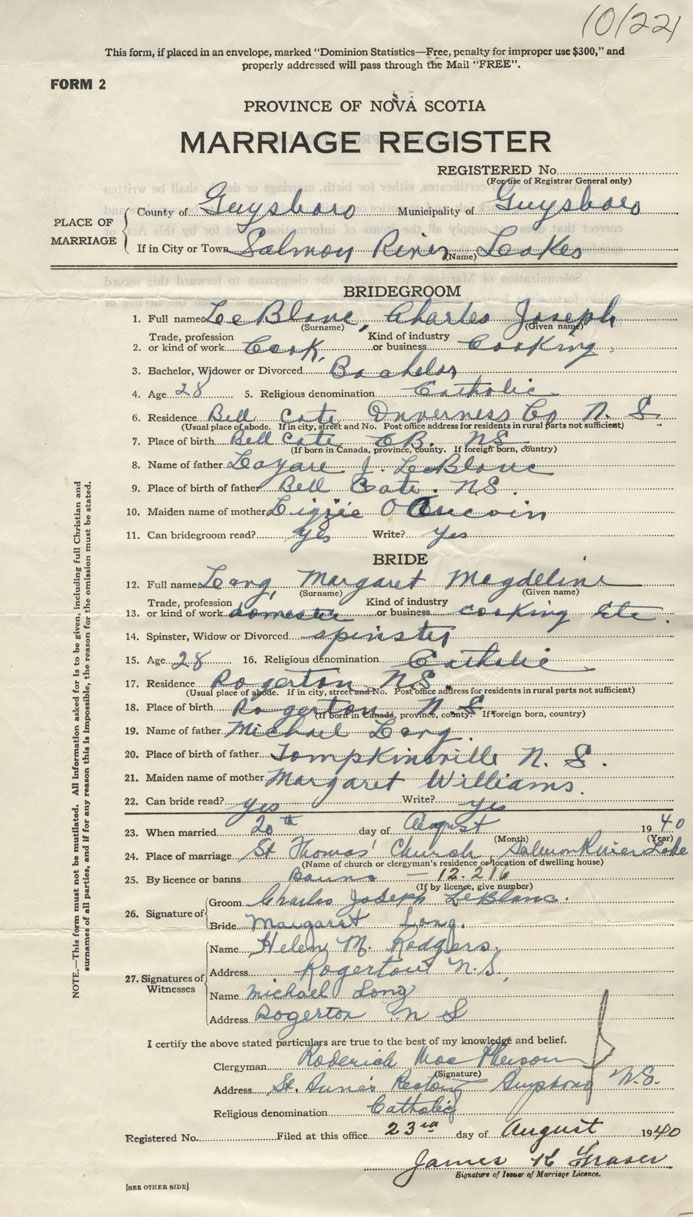 10/22
This form, if placed in an envelope, marked "Dominion Statistics—Free, penalty for improper use $300," and
properly addressed will pass through the Mail "FREE".
FORM 2
PROVINCE OF NOVA SCOTIA
MARRIAGE REGISTER
REGISTERED No.
(For use of Registrar General only)
PLACE OF MARRIAGE
County of Guysboro Municipality of Guysboro
If in City or Town Salmon River Lakes
(Name)
BRIDEGROOM
1. Full name LeBlanc, Charles Joseph
(Surname) (Given name)
2. Trade, profession or kind of work Cook, Kind of industry or business Cooking
3. Bachelor, Widower or Divorced Bachelor
4. Age 28 5. Religious denomination Catholic
6. Residence Bell Cote Inverness Co N. S.
(Usual place of abode. If in city, street and No. Post office address for residents in rural parts not sufficient)
7. Place of birth Bell Cote CB. NS
(If born in Canada, province, county. If foreign born, country)
8. Name of father Lazare J. LeBlanc
9. Place of birth of father Bell Cote. NS.
10. Maiden name of mother Lizzie Aucoin
11. Can bridegroom read? yes Write? yes
BRIDE
12. Full name Long, Margaret Magdeline
(Surname) (Given name)
13. Trade, profession or kind of work domestic Kind of industry or business cooking Etc.
14. Spinster, Widow or Divorced spinster
15. Age 28 16. Religious denomination Catholic
17. Residence Rogerton N.S.
(Usual place of abode. If in city, street and No. Post office address for residents in rural parts not sufficient)
18. Place of birth Rogerton N. S.
(If born in Canada, province, county. If foreign born, country)
19. Name of father Michael Long.
20. Place of birth of father Tompkinsville N. S.
21. Maiden name of mother Margaret Williams.
22. Can bride read? yes Write? yes
23. When married 20th day of August 1940
(Month) (Year)
24. Place of marriage St Thomas' Church, Salmon River Lake
(Name of church or clergyman's residence or location of dwelling house)
25. By licence or banns Banns — 12.216
(If by license, give number)
26. Signature of
Groom Charles Joseph LeBlanc.
Bride Margaret Long.
27. Signatures of Witnesses
Name Helen M. Rodgers.
Address Rogerton N.S.
Name Michael Long
Address Rogerton N S
I certify the above stated particulars are true to the best of my knowledge and belief.
Clergyman Roderick MacPherson
(Signature)
Address St. Rectory N.S.
Religious denomination Catholic
Registered No. Filed at this office 23rd day of August 1940
James Fraser
Signature of Issuer of Marriage Licence.
[SEE OTHER SIDE]
NOTE.—This form must not be mutilated. All information asked for is to be given, including full Christian and
surnames of all parties, and if for any reason this is impossible, the reason for the omission must be stated.